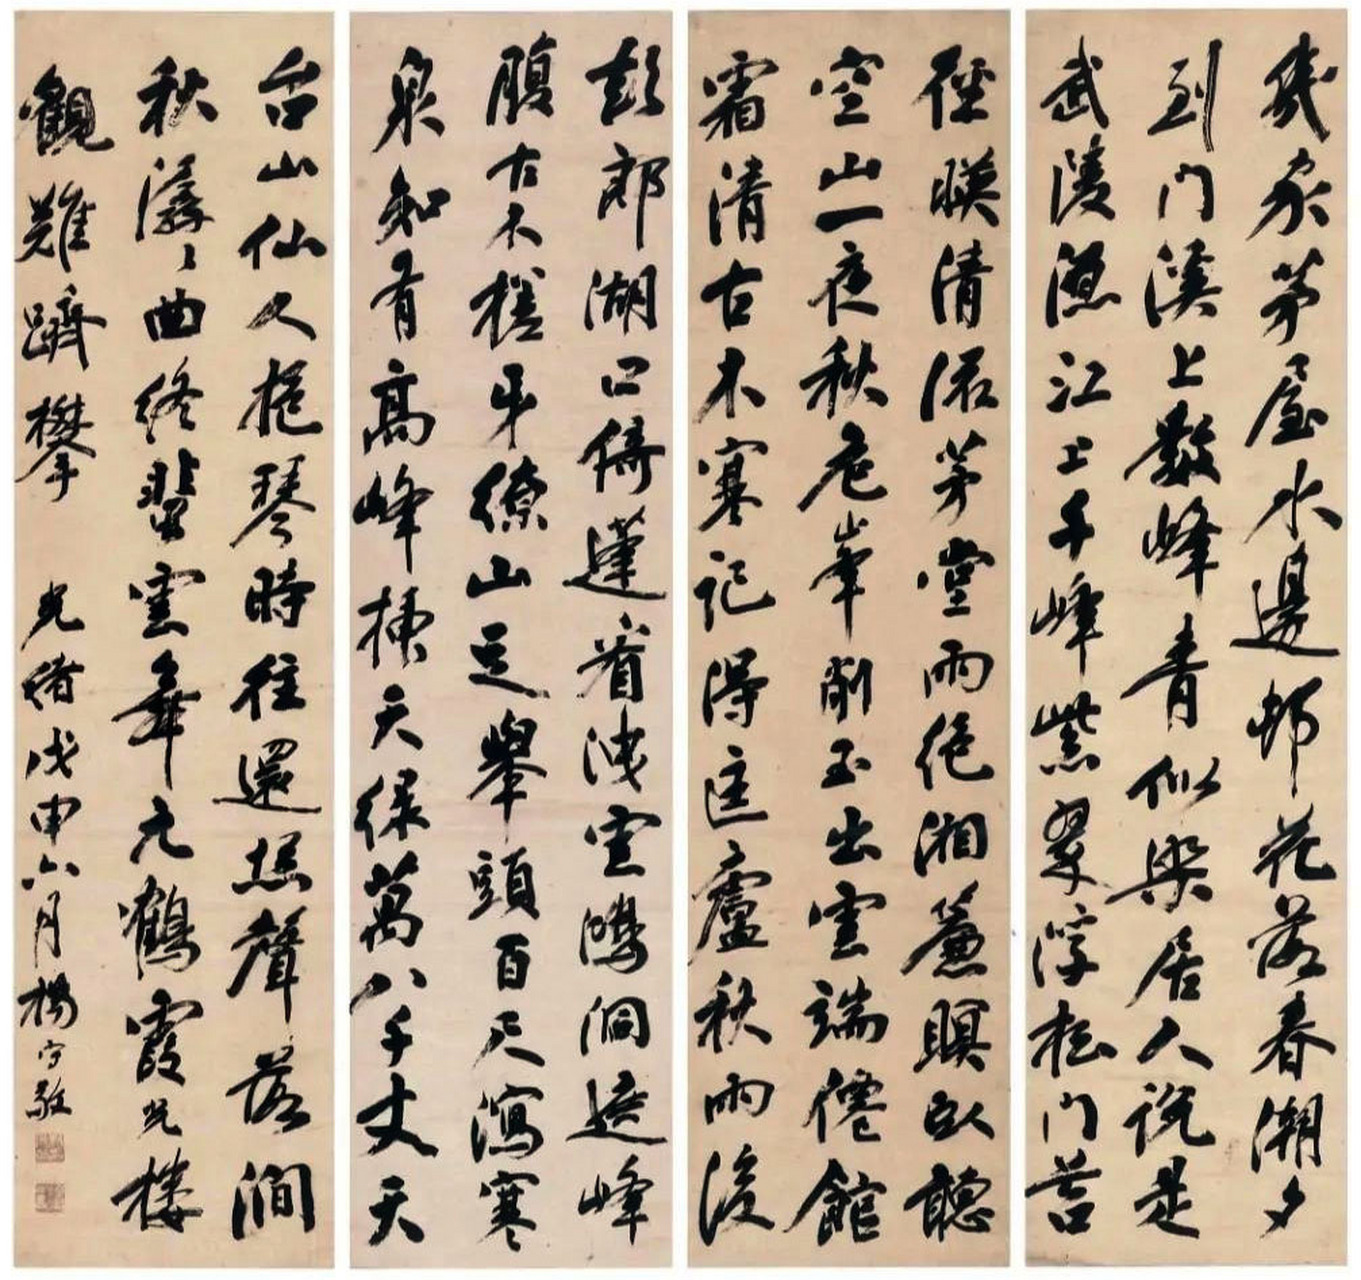 幾家茅屋水邊邨花落春潮夕
到門溪上數峰青似染居人說是
武陵源江上千峰紫翠浮松門苔
徑暎清流茅堂雨絕湘簾暝臥聽
空山一夜秋危峯削玉出雲端僊館
霜清古木寒記得匡廬秋雨後
彭郎湖口倚蓬看洩雲幽洞遮峰
腹古木槎牙繚山足舉頭百尺瀉寒
泉知有高峰插天綠萬八千丈天
台山仙人抱琴時往還松聲落澗
秋潺潺曲終翡雲舞元鶴霞光樓
觀難躋攀
光緒戊申六月楊守敬